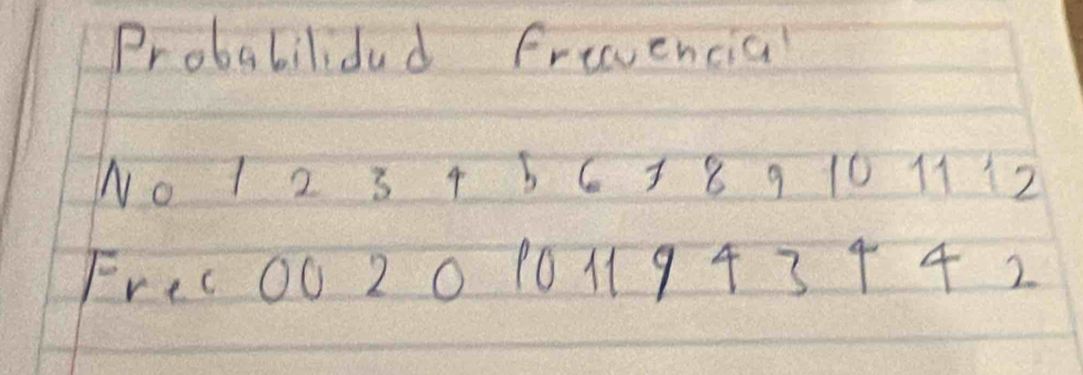 Probabilidad Frecuencial
No 1 2 3 4 5 6 7 8 9 10 11 12
Frec 0 0 2 0 10 11 9 4 3 4 4 2